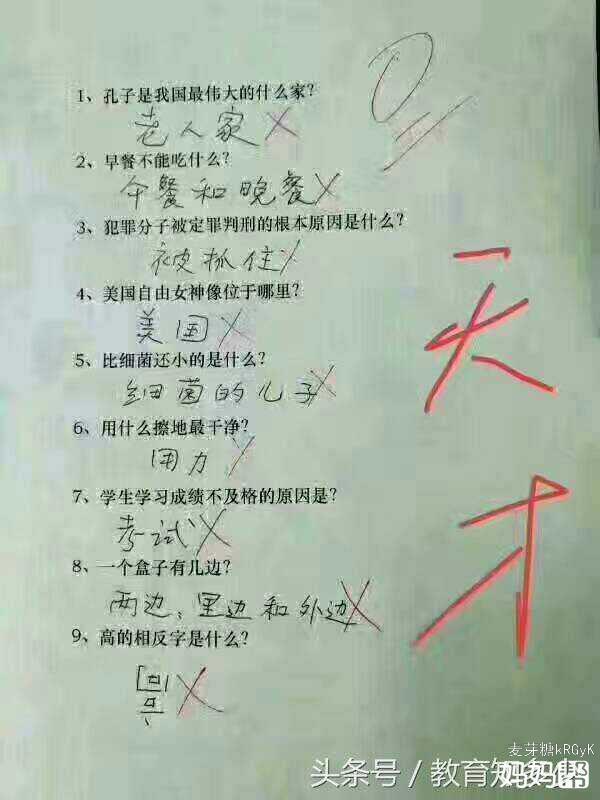 0
1、孔子是我国最伟大的什么家?
老人家
2、早餐不能吃什么?
午餐和晚餐
3、犯罪分子被定罪判刑的根本原因是什么?
被抓住
4、美国自由女神像位于哪里?
美国
5、比细菌还小的是什么?
细菌的儿子
6、用什么擦地最干净?
用力
7、学生学习成绩不及格的原因是?
考试
8、一个盒子有几边?
两边，里边和外边
9、高的相反字是什么?
天才
麦芽糖kRGyK
头条号 / 教育知
妈妈帮